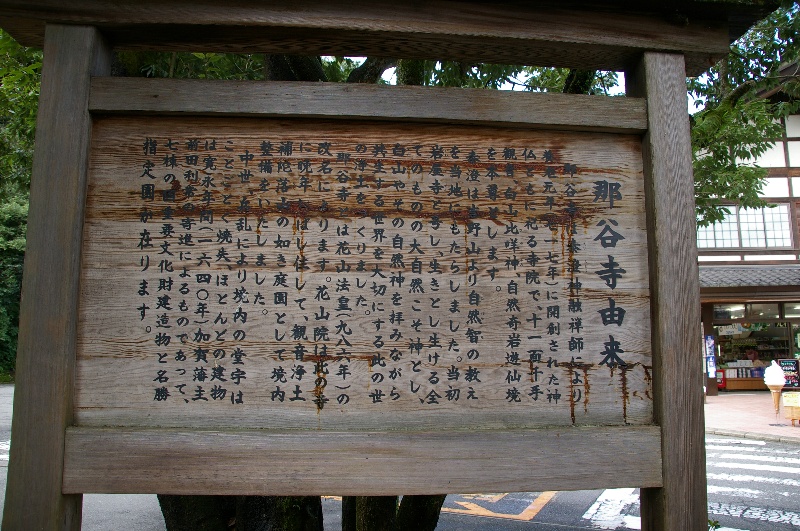 那谷寺由来
那谷寺は泰澄神融禅師により
養老元年（七一七年）に開創された神
仏ともに祀る寺院で、十一面千手
観音、白山比咩神、自然奇岩遊仙境
を本尊とします。
泰澄は吉野山より自然智の教え
を当地にもたらしました。当初
岩屋寺と号し、生きとし生ける全
てのものの大自然こそ神とし、
白山やその自然神を拝みながら
共生する世界を大切にする此の世
の浄土をつくりました。
那谷寺とは花山法皇（九八六年）の
改名に依ります。花山院は此の寺
に晩年しばし住して、観音浄土
補陀落山の如き庭園として境内
整備をいたしました。
中世、兵乱により境内の堂宇は
ことごとく焼失、ほとんどの建物
は寛永年間（一六四〇年）加賀藩主
前田利常の寄進によるものであって、
七棟の国重要文化財建造物と名勝
指定園が在ります。